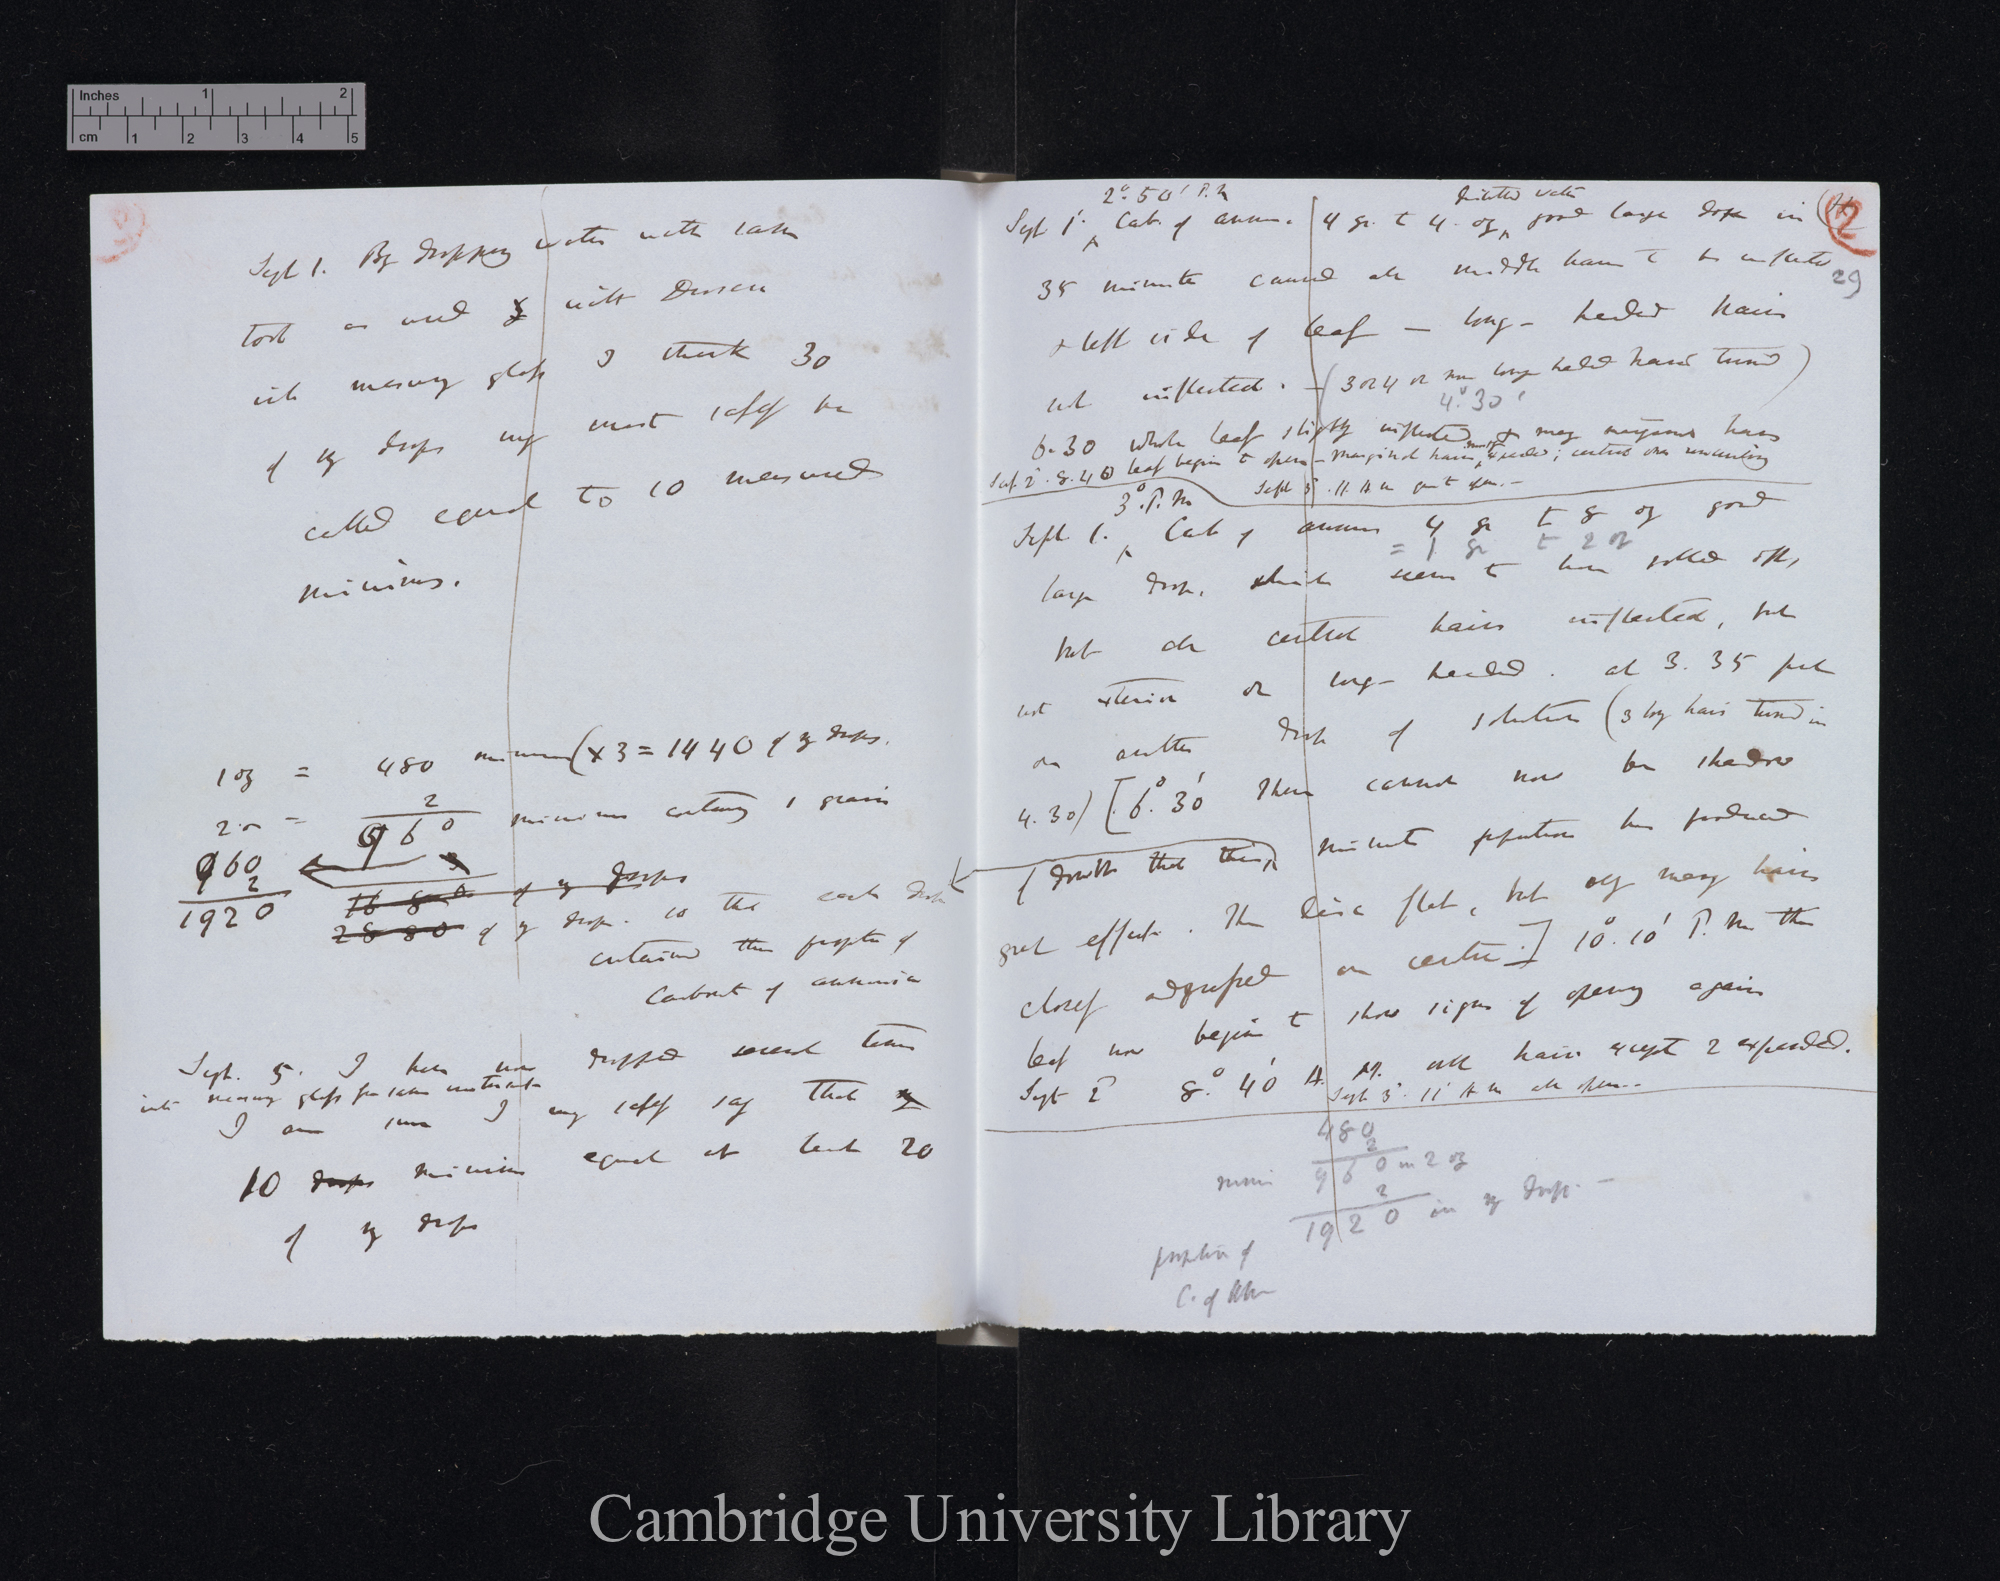 Inches 1 2
cm 1 2 3 4 5
Sept 1. By dropping water with same
tool as used with Drosera
into measuring glass I think 30
of my drops may most safely be
called equal to 10 measured
minims.
1 oz = 480 minims (x 3 = 1440 of my drops.
2
2 oz = 960 minims containing 1 grain
960
2
1920
1680 of my drops
2880 of my drops. so that each drop
contained this proportion of
Carbonate of ammonia
Sept. 5. I have now dropped several times
into measuring glass for same instrument
I am sure I may safely say that
10 drops minims equal at least 20
of my drops
2°. 50' P.M distilled water
Sept 1. Carb. of ammon. 4 gr. to 4. oz, good large drop in
2
29
35 minutes caused all middle hairs to be inflected
& left side of leaf — long-headed hairs
not inflected. — (3 or 4 or more long headed hairs turned)
4°. 30'
6.30 whole leaf slightly inflected & many marginal hairs
Sept. 2. 8.40 leaf begins to open — marginal hairs most expanded; central ones remaining
Sept 3. 11. A m open. —
3°. P. M
Sept 1. Carb of ammon 4 gr to 8 oz good
= 1 gr to 2 oz
large drop, which seems to have rolled off,
but all central hairs inflected, but
not exterior or long-headed. at 3. 35 put
on another drop of solution (3 long hairs turned in
4.30) [6°. 30' There cannot now be shadow
of doubt that this minute proportion has produced
great effect. The disc flat, but very many hairs
closely adpressed on centre.] 10°. 10' P. M The
leaf now begins to show signs of opening again
Sept 2 8.° 40' A. M. all hairs except 2 expanded.
Sept 3. 11' A m all open. —
480
2
minims 960 in 2 oz
2
1920 in my drops. —
proportion of
C. of Am
Cambridge University Library